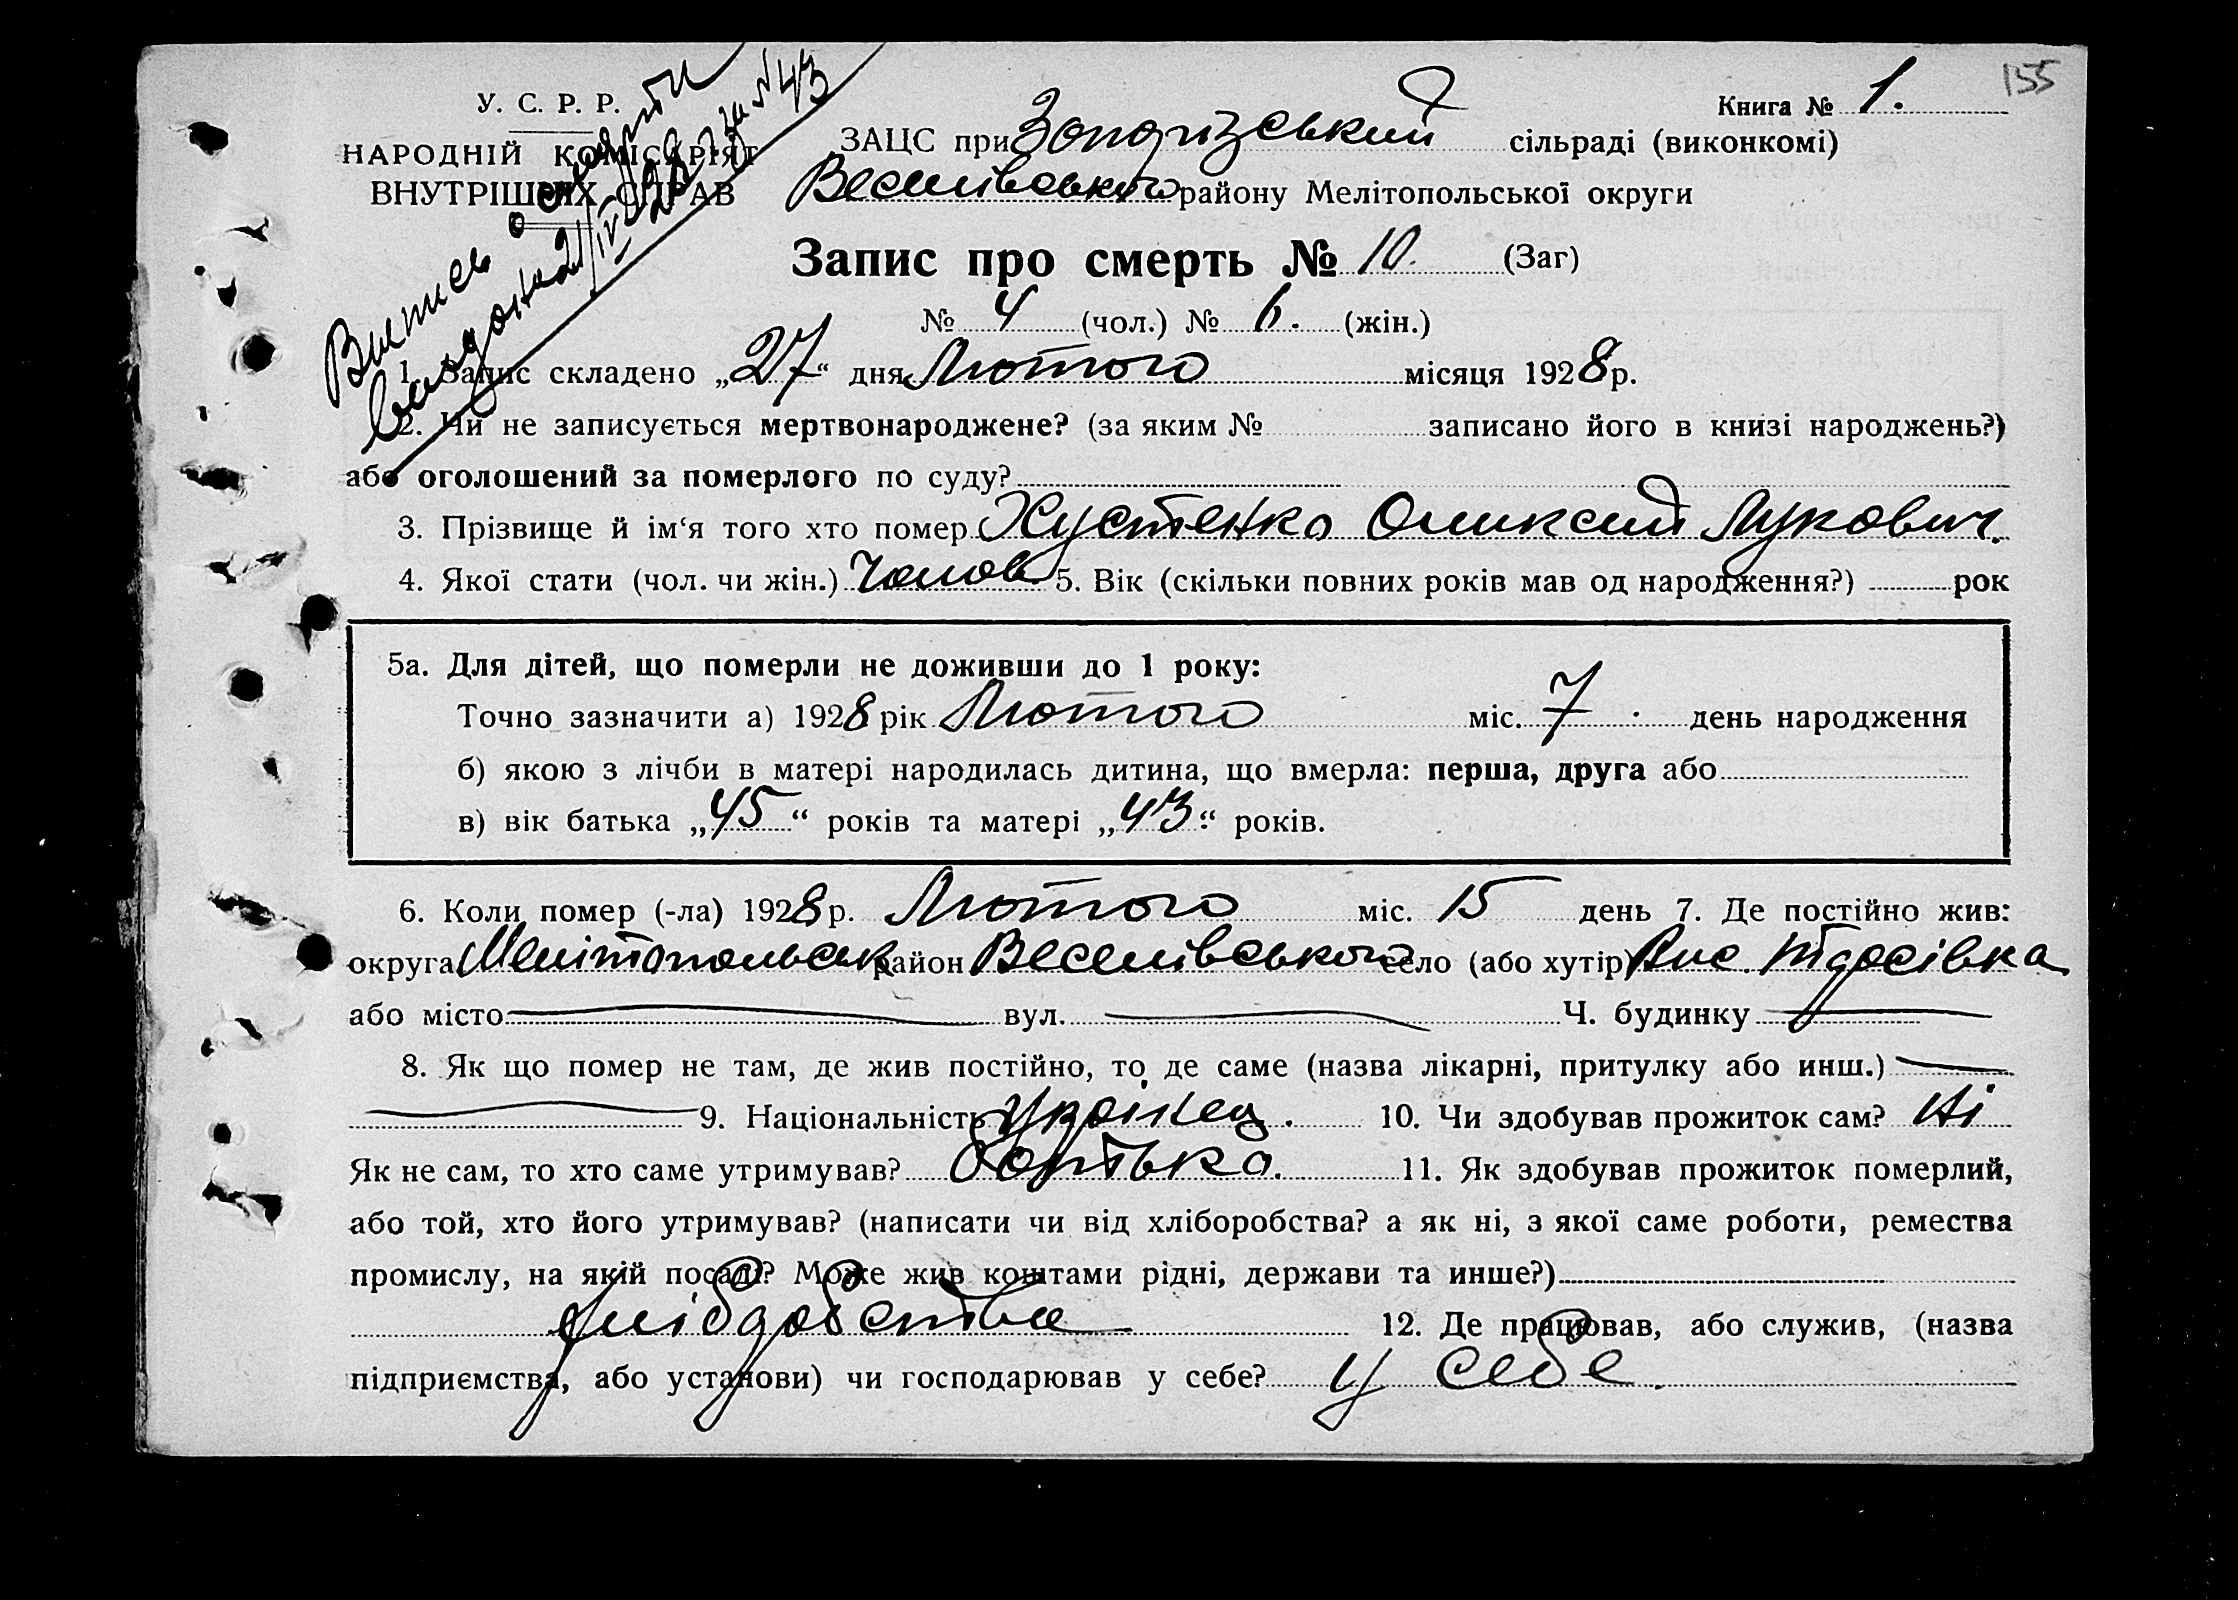 155
У. С. Р. Р.
НАРОДНІЙ КОМІСАРІЯТ
ВНУТРІШНІХ СПРАВ
Выпись о смерти
выдана 21/IV 1928 г за № 43
Книга № 1.
ЗАЦС при сільраді (виконкомі)
Веселівського району Мелітопольської округи
Запис про смерть № 10. (Заг)
№ 4 (чол.) № 6. (жін.)
1. Запис складено „27“ дня Лютого місяця 1928 р.
2. Чи не записується мертвонароджене? (за яким № записано його в книзі народжень?)
або оголошений за померлого по суду?
3. Прізвище й ім‘я того хто помер Хустенко Оликсий Лукович.
4. Якої стати (чол. чи жін.) Чолов. 5. Вік (скільки повних років мав од народження?) рок
5а. Для дітей, що померли не доживши до 1 року:
Точно зазначити а) 1928 рік Лютого міс. 7 день народження
б) якою з лічби в матері народилась дитина, що вмерла: перша, друга або
в) вік батька „45“ років та матері „43“ років.
6. Коли помер (-ла) 1928 р. Лютого міс. 15 день 7. Де постійно жив:
округа Мелітопольськ район Веселівського село (або хутір)
або місто вул. Ч. будинку
8. Як що помер не там, де жив постійно, то де саме (назва лікарні, притулку або инш.)
9. Національність Украінец. 10. Чи здобував прожиток сам? Ні
Як не сам, то хто саме утримував? Батько. 11. Як здобував прожиток померлий,
або той, хто його утримував? (написати чи від хліборобства? а як ні, з якої саме роботи, ремества
промислу, на якій посаді? Може жив коштами рідні, держави та инше?)
12. Де працював, або служив, (назва
підприємства, або установи) чи господарював у себе? у себе.